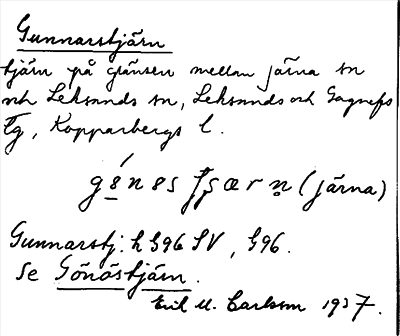 Gunnarstjärn
tjärn på gränsen mellan Järna sn
och Leksands sn, Leksands och Gagnefs
Tg, Kopparbergs l.
(Järna)
Gunnarstj. h G96 SV, G96.
Se Gönöstjärn.
Eril M. Carlsson 1937.